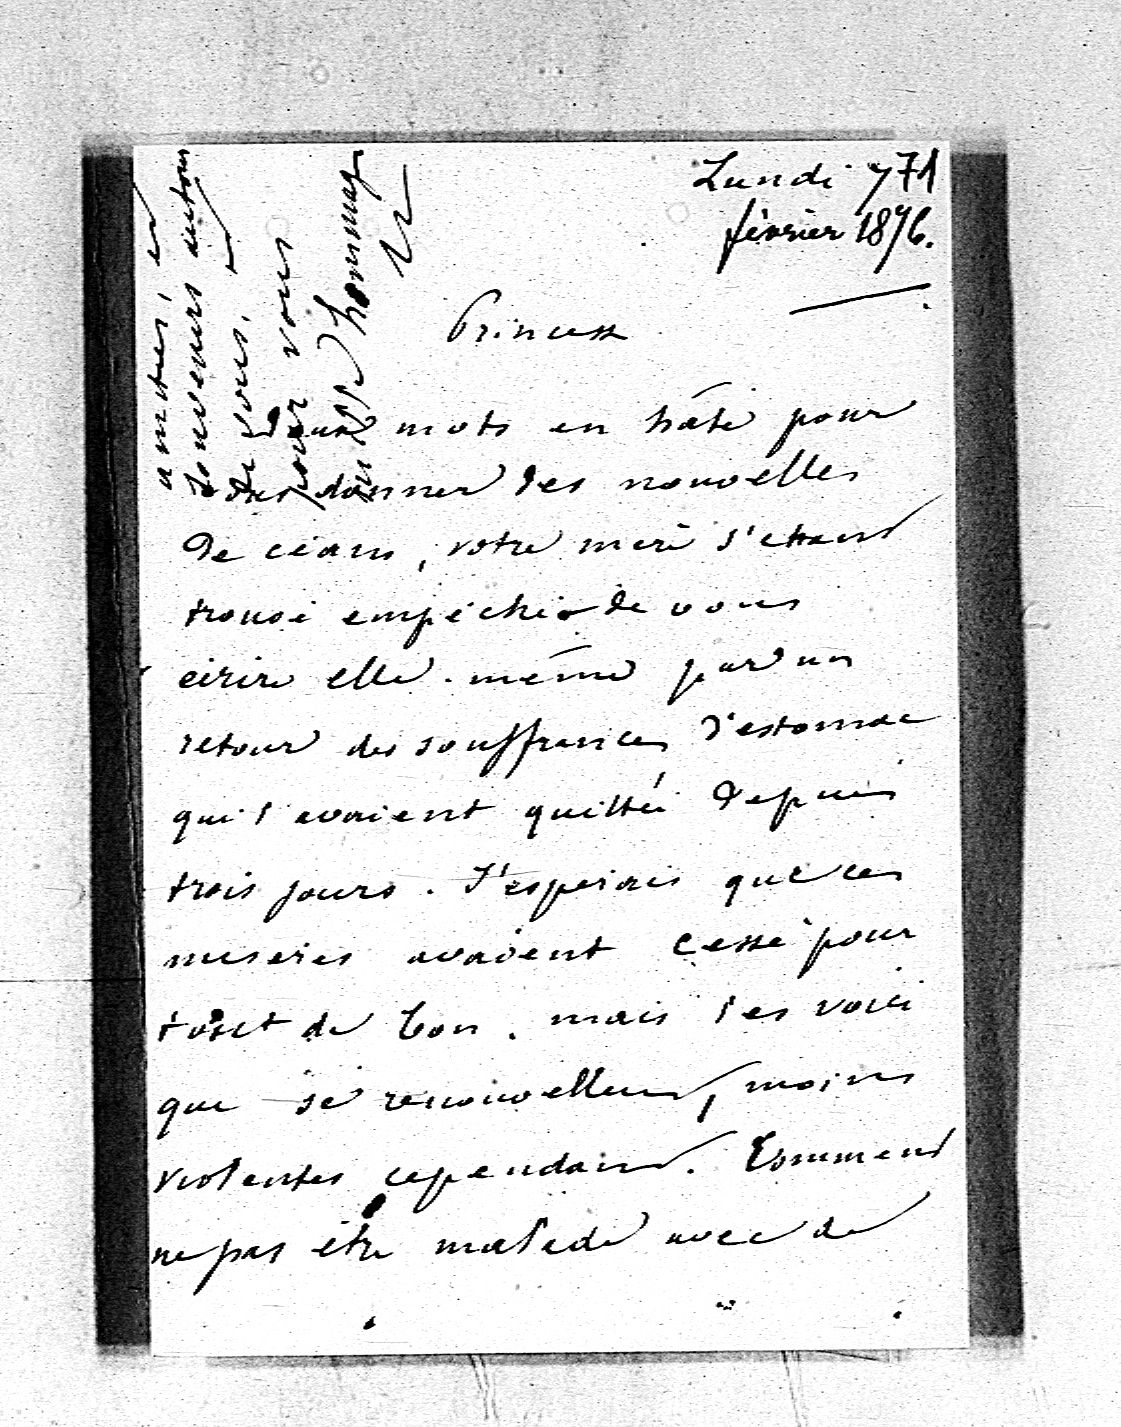 Lundi 7
février 1876.
Princesse
Deux mots en hâte pour
vous donner des nouvelles
de céans, votre mère s'étant
trouvé empêchée de vous
écrire elle-même par un
retour des souffrances d'estomac
qui l'avaient quittée depuis
trois jours. J'espérais que ces
misères avaient cessé pour
tout de bon. mais les voici
que se renouvellent, moins
violentes cependant. Comment
ne pas être malade avec de
amitiés, et
souvenirs autour
de vous, et
pour vous
hommages